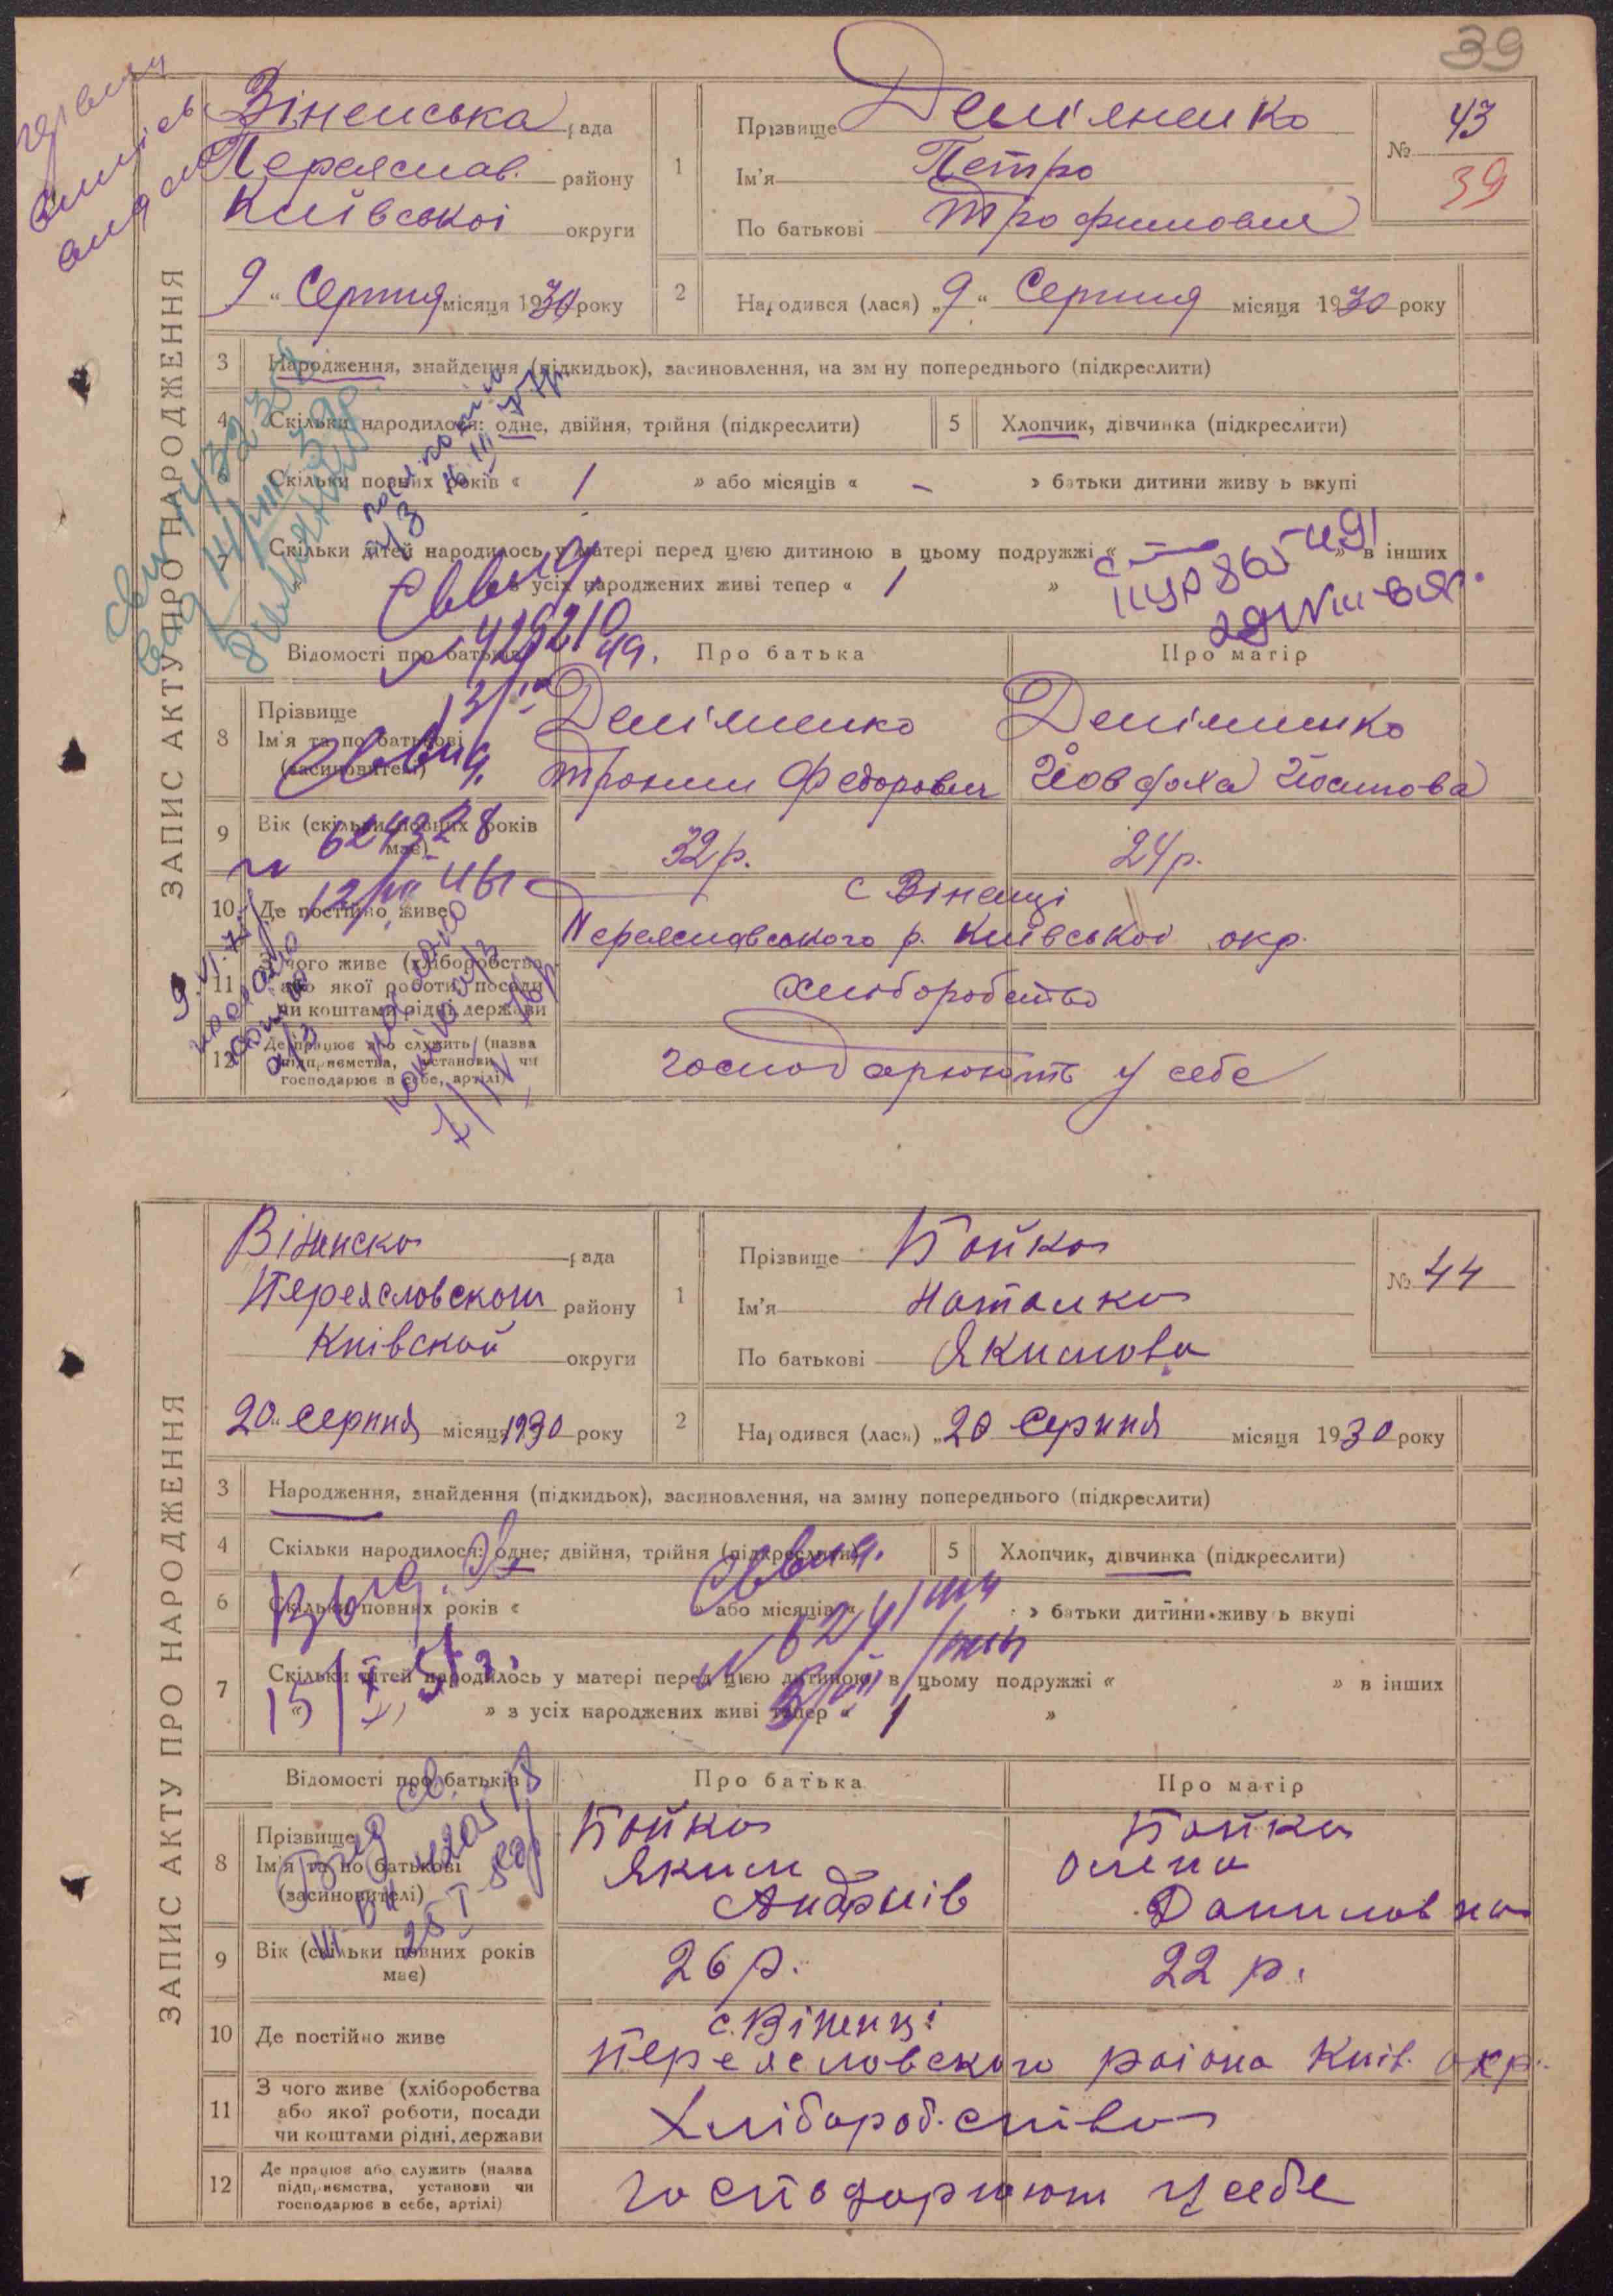 39
ЗАПИС АКТУ ПРО НАРОДЖЕННЯ
Віненська рада
Переяслав. району
Київської округи
9 " Серпня місяця 1930 року
1 Прізвище Демʼяненко
Імʼя Петро
По батькові Трофимович
№ 43
39
2 Народився (лася) „ 9 " Серпня місяця 1930 року
3 Народження, знайдення (підкидьок), засиновлення, на зміну попереднього (підкреслити)
4 Скільки народилося: одне, двійня, трійня (підкреслити) 5 Хлопчик, дівчинка (підкреслити)
Скільки повних років « 1 » або місяців « – » батьки дитини живуть вкупі
Скільки дітей народилось у матері перед цією дитиною в цьому подружжі « – » в інших
з усіх народжених живі тепер « 1 »
Відомості про батьків Про батька Про матір
8 Прізвище Імʼя та по батькові (засиновителі)
Деміяненко Деміяненко
Трохим Федорович Йовдоха Йосипова
9 Вік (скільки повних років має) 32 р. 24 р.
10 Де постійно живе с Віненці
Переяславського р. Київської окр.
11 З чого живе (хліборобства або якої роботи, посади чи коштами рідні, держави
хліборобство
12 Де працює або служить (назва підприємства, установи чи господарює в себе, артілі)
господарюють у себе
ЗАПИС АКТУ ПРО НАРОДЖЕННЯ
Віненска рада
Переясловском району
Київской округи
20 " серпня місяця 1930 року
1 Прізвище Бойко
Імʼя Наталка
По батькові Якимова
№ 44
2 Народився (лася) „ 20 Серпня місяця 1930 року
3 Народження, знайдення (підкидьок), засиновлення, на зміну попереднього (підкреслити)
4 Скільки народилося: одне, двійня, трійня (підкреслити) 5 Хлопчик, дівчинка (підкреслити)
6 Скільки повних років « » або місяців « » батьки дитини живуть вкупі
7 Скільки дітей народилось у матері перед цією дитиною в цьому подружжі « » в інших
« » з усіх народжених живі тепер « 1 »
Відомості про батьків Про батька Про матір
8 Прізвище Імʼя та по батькові (засиновителі)
Бойко Бойко
Яким Олена
Андріїв Даниловна
9 Вік (скільки повних років має) 26 р. 22 р.
10 Де постійно живе с. Віненці
Переясловского раіона Київ. окр.
11 З чого живе (хліборобства або якої роботи, посади чи коштами рідні, держави
Хлібороб.ство
12 Де працює або служить (назва підприємства, установи чи господарює в себе, артілі)
господарюют у себе